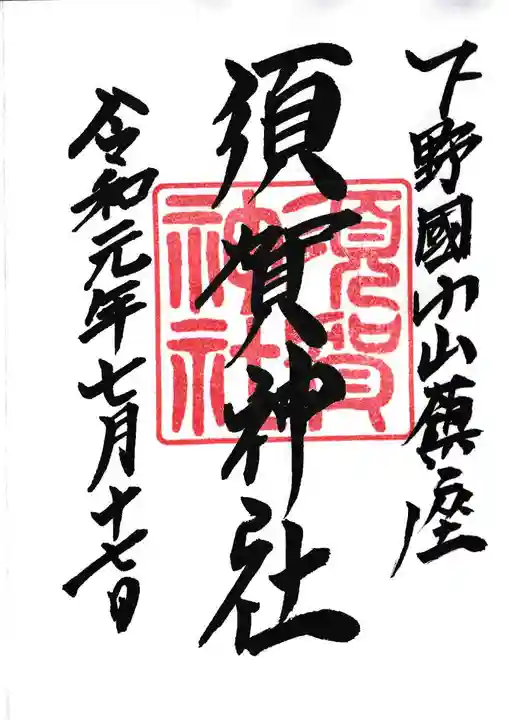 下野國小山鎮座
須賀神社
須賀
神社
令和元年七月十七日